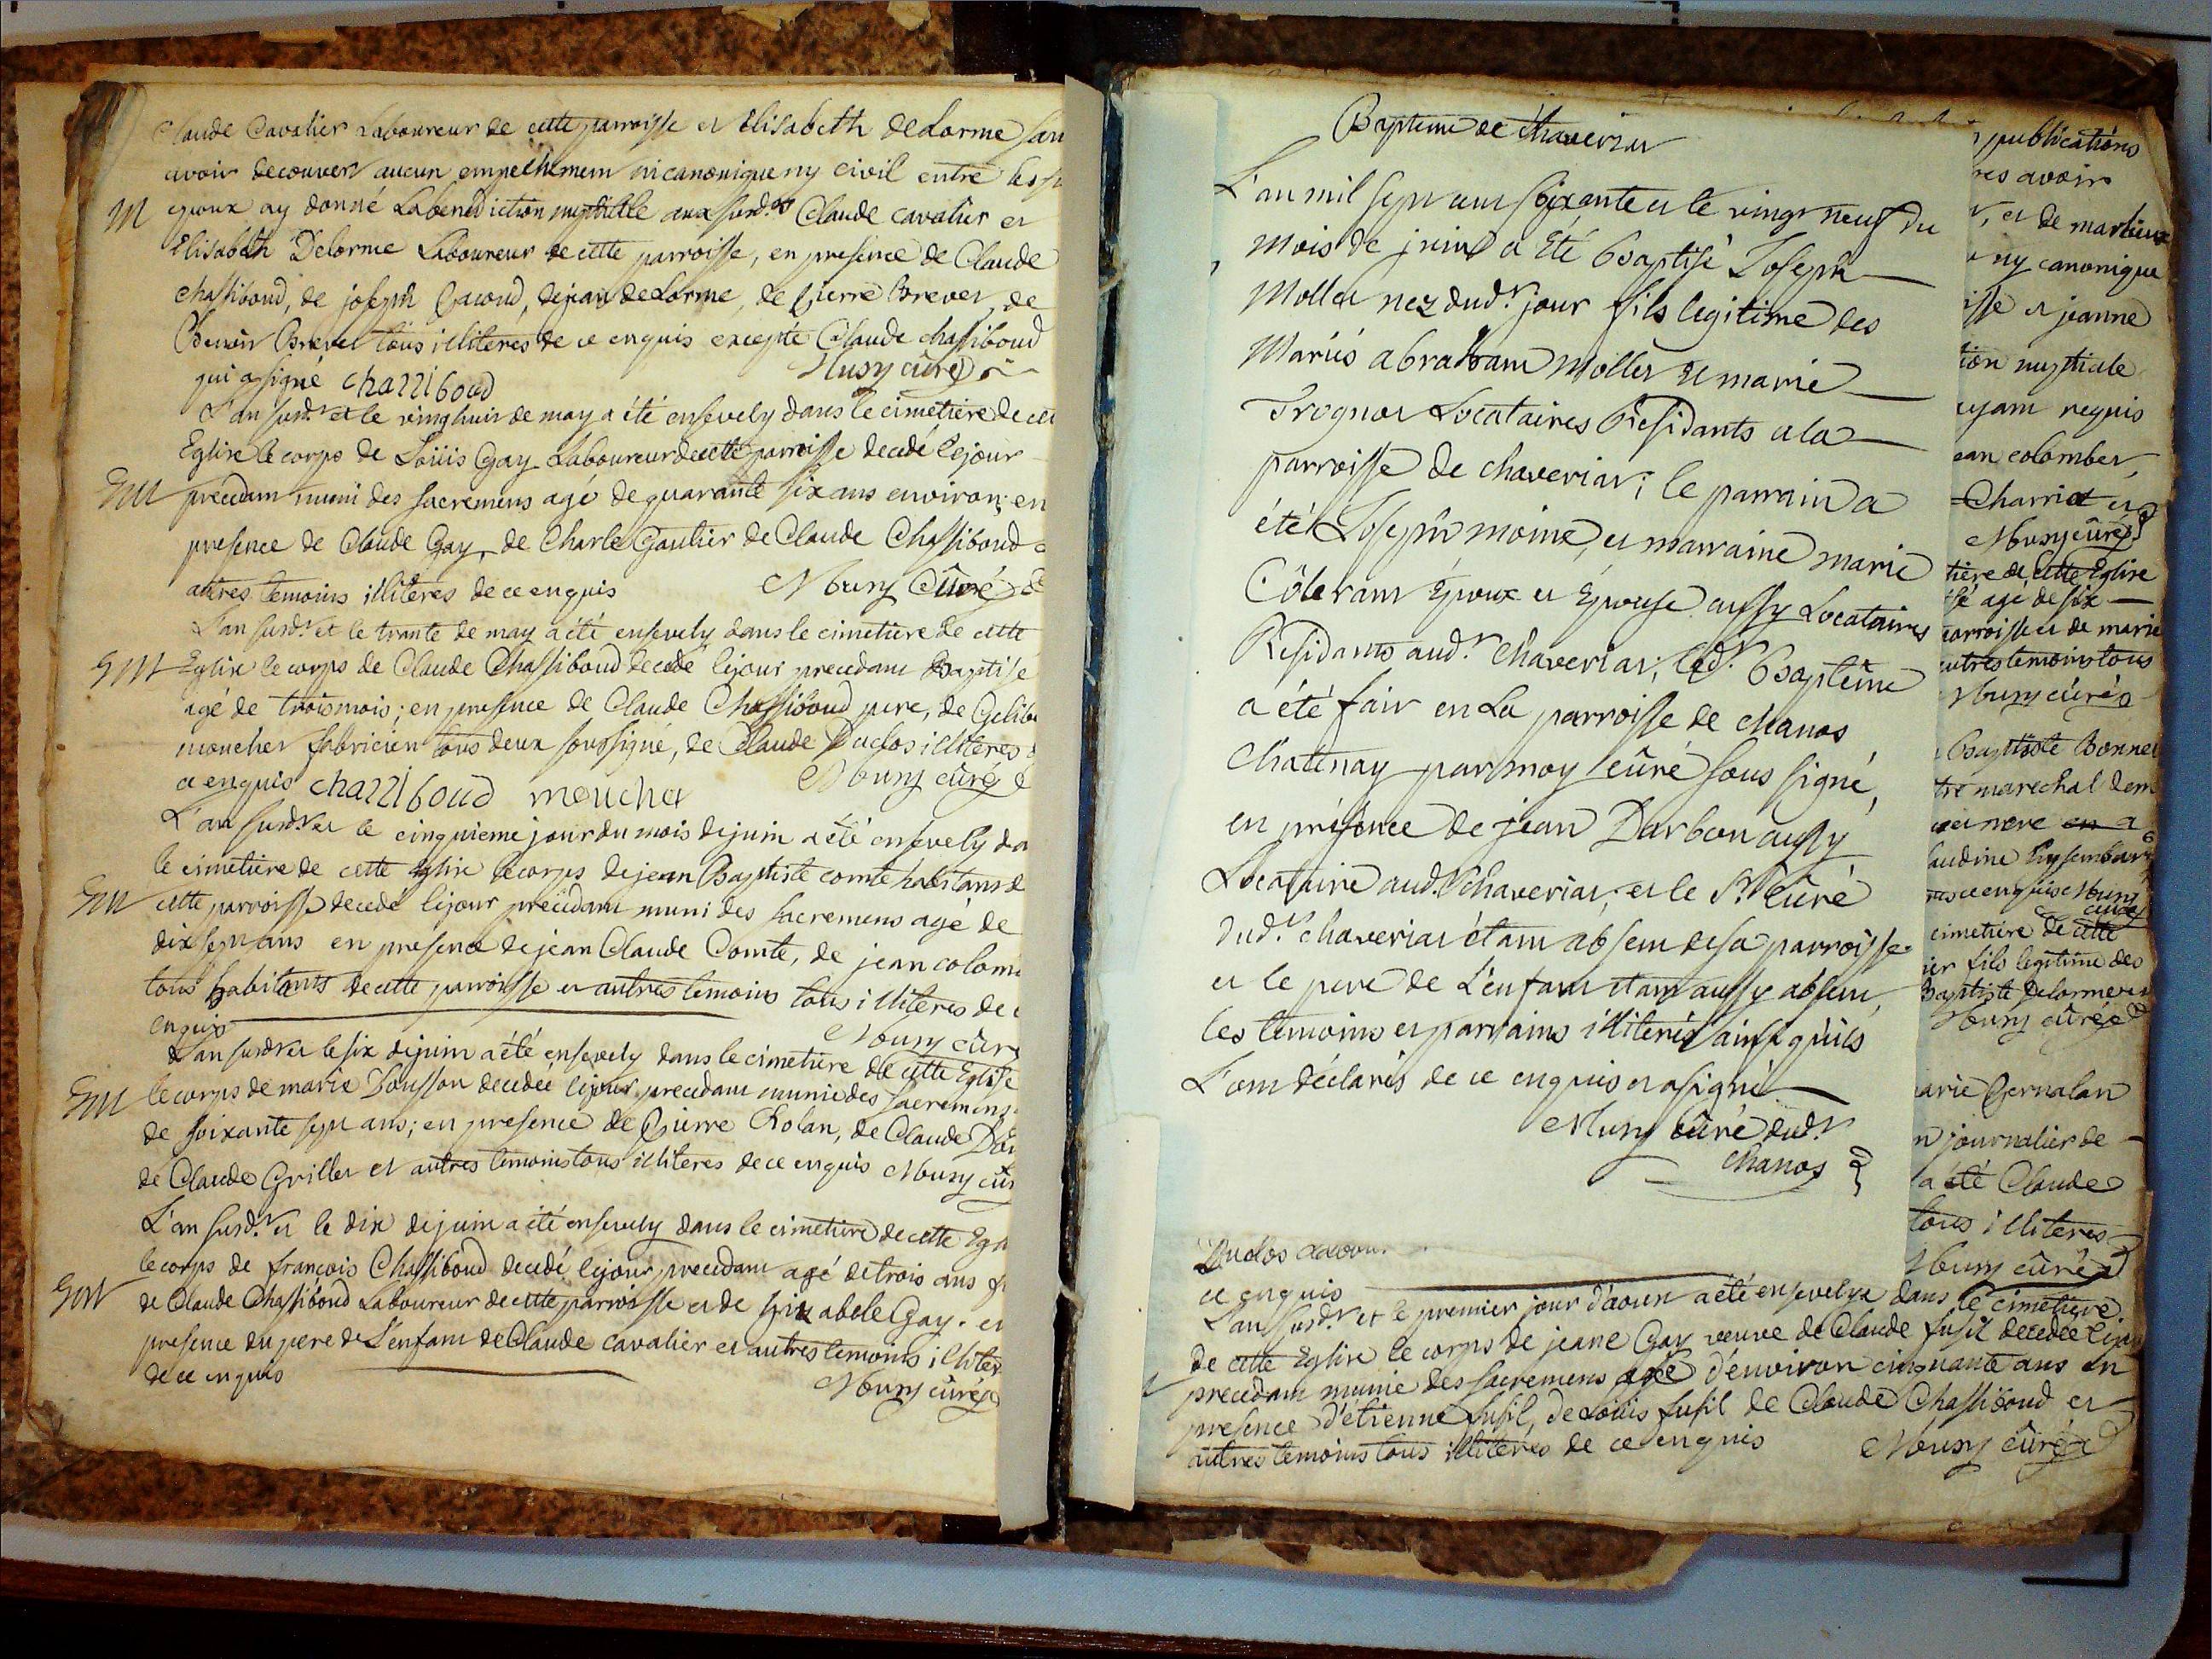 Claude Cavalier Laboureur de cette parroisse et Elisabeth deLorme san
avoir decouvert aucun empechement ni canonique ny civil entre les
M
epoux ay donné La benediction nuptialle aux susd.ts Claude cavalier et
Elisabeth Delorme Laboureur de cette parroisse, en presence de Claude
chassiboud, de joseph Gacoud, de jean deLorme, de Pierre Brevet, de
Benoit Brevet tous illiteres de ce enquis excepté Claude chassiboud
qui a signé chassiboud Musy curé
L'an susd.t et le vingt huit de may a été ensevely dans le cimetiere de cet
Eglise le corps de Loüis Gay Laboureur de cette parroisse decedé le jour
Ent
precedant muni des sacremens agé de quarante six ans environ; en
presence de Claude Gay, de Charle Gautier de Claude Chassiboud
autres temoins illiteres de ce enquis Musy Curé
L'an susd.t et le trante de may a été ensevely dans le cimetiere de cette
Ent
Eglise le corps de Claude Chassiboud decedé le jour precedant Baptise
agé de trois mois; en presence de Claude Chassiboud pere, de
mouchet fabricien tous deux soussigné, de Claude Duclos illiteres
ce enquis chassiboud mouchet Musy curé
L'an susd.t et le cinquieme jour du mois de juin a été ensevely da
le cimetiere de cette Eglise le corps de jean Baptiste comte habitans d
Ent
cette parroisse decedé le jour precedant muni des sacremens agé de
dix sept ans en presence de jean Claude Comte, de jean colom
tous habitants de cette parroisse et autres temoins tous illiteres de
enquis Musy cur
L'an susd.t et le six de juin a été ensevely dans le cimetiere de cette Eglise
Ent
le corps de marie Tousson decedée le jour precedant munie des sacremens
de soixante sept ans; en presence de Pierre Rolan, de Claude
de Claude Grillet et autres temoins tous illiteres de ce enquis Musy cur
L'an susd.t et le dix de juin a été ensevely dans le cimetiere de cette Egl
le corps de francois Chassiboud decedé le jour precedant agé de trois ans
Ent
de Claude Chassiboud Laboureur de cette parroisse et de Gay. en
presence du pere de L'enfant de Claude cavalier et autres temoins illiter
de ce enquis Musy curé
Bapteme de chaveriat
L'an mil sept cent soixante et le vingt neuf du
mois de juin a Eté Baptisé Joseph
Mollet nez dud.t jour fils legitime des
Mariés abraham Mollet et marie
Trognot Locataires Residants a la
parroisse de chaveriat; le parrain a
été Joseph moine, et marraine marie
Epoux et Epouse aussy Locataires
Residants aud.t chaveriat; led.t Bapteme
a été fait en La parroisse de chanos
Chatenay par moy curé sous signé,
en présence de jean Darbon aussy
Locataire aud.t chaveriat; et le S.r curé
dud.t chaveriat étant absent de sa parroisse
et le pere de L'enfant étant aussy absent,
les temoins et parrains illiterés ainsy qu'ils
L'ont déclarés de ce enquis et a signé
Musy curé dud.t
chanos
publications
res avoir
, et de martieux
ny canonique
isse et jeanne
tion nuptiale
requis
ean colombet,
Charriat et
Musy curé
tiere de cette Eglise
sé agé de six
parroisse et de marie
autres temoins tous
Musy curé
Baptiste Bonnet
tre marechal dem
laudine
curé
cimetiere de cette
ier fils legitime des
Baptiste Delorme
Musy curé
arie Bernalan
n journalier de
a été Claude
tous illiteres
Musy curé
Duclos
ce enquis
L'an susd.t et le premier jour d'aoust a été ensevelye dans le cimetiere
de cette Eglise le corps de jeane Gay veuve de Claude fusil decedée le jour
precedant munie des sacremens agée d'environ cinquante ans en
presence d'étienne fusil, de Loüis fusil de Claude Chassiboud et
autres temoins tous illiteres de ce enquis Musy curé